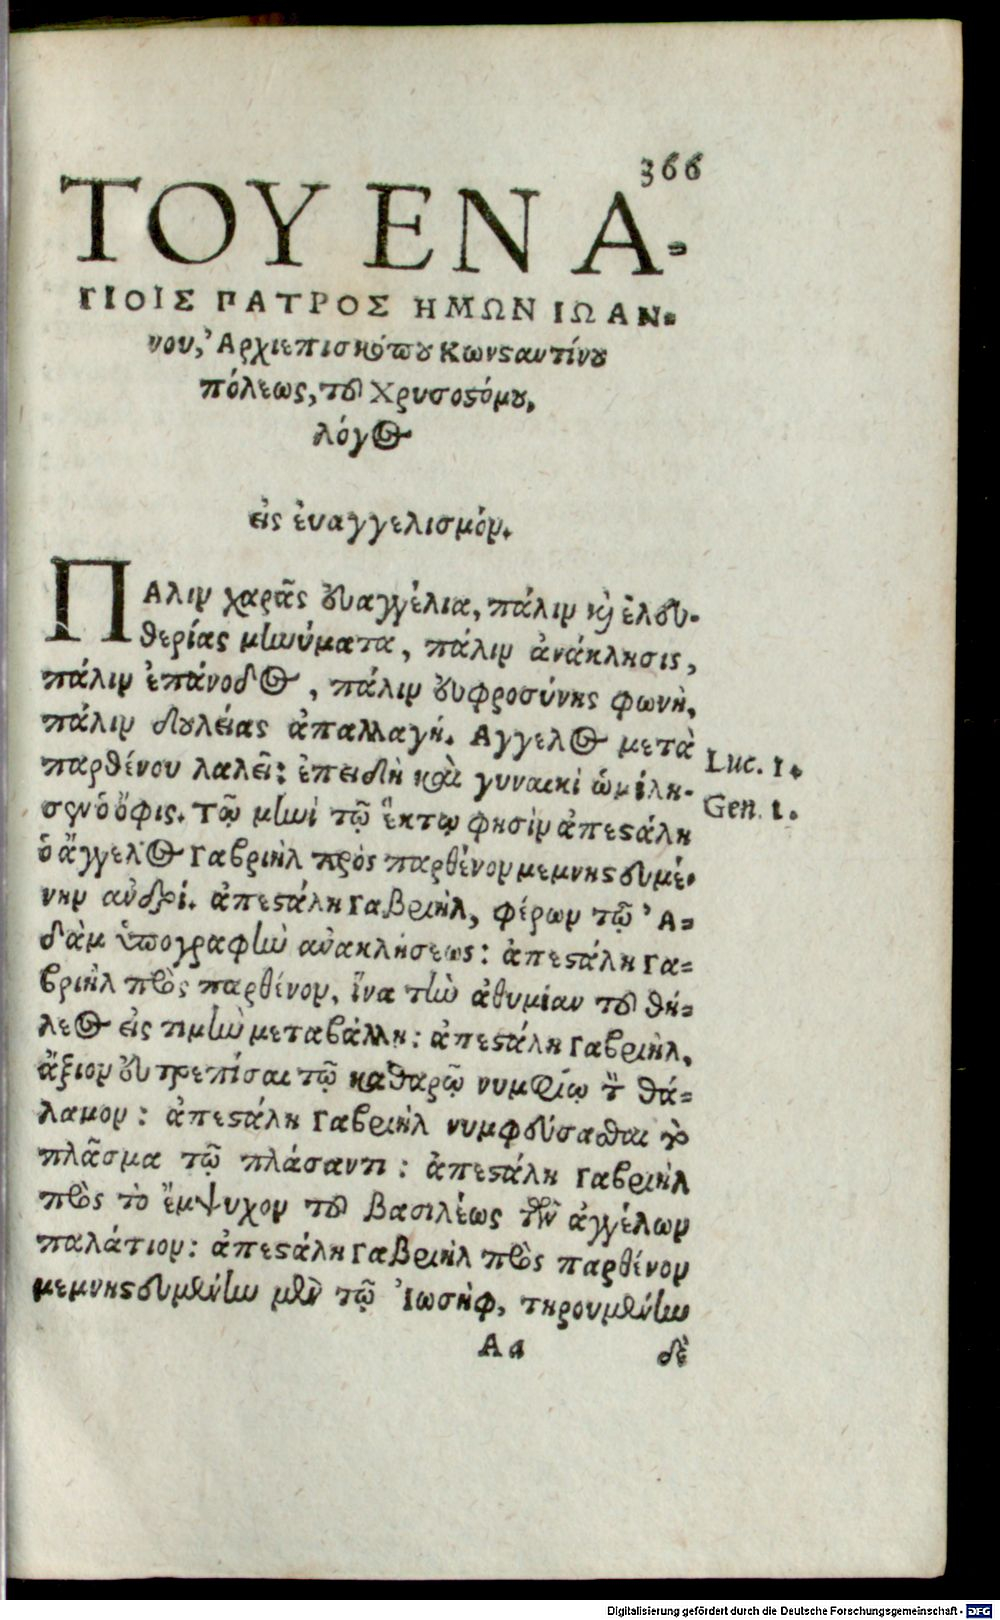 366
ΤΟΥ ΕΝ Α-
ΓΙΟΙΣ ΠΑΤΡΟΣ ΗΜΩΝ ΙΩΑΝ-
νου, Ἀρχιεπισκόπου Κωνσταντίνου
πόλεως, τοῦ Χρυσοστόμου,
λόγος
εἰς ἐυαγγελισμόν.
ΠΑλιν χαρᾶς ευαγγέλια, πάλιν καὶ ἐλευ-
θερίας μηνύματα, πάλιν ἀνάκλησις,
πάλιν ἐπάνοδος, πάλιν ευφροσύνης φωνὴ,
πάλιν δουλείας ἀπαλλαγή. Αγγελος μετὰ
παρθένου λαλεῖ: ἐπειδὴ καὶ γυναικὶ ὡμίλη-
σεν ὁ ὄφις. Τῷ μηνὶ τῷ ἕκτῳ φησὶν ἀπεστάλη
ὁ ἄγγελος Γαβριὴλ πρὸς παρθένον μεμνηστευμέ-
νην ανδρί. ἀπεστάλη Γαβριὴλ, φέρων τῷ Ἀ-
δὰμ ὑπογραφὴν ανακλήσεως: ἀπεστάλη Γα-
βριὴλ πρὸς παρθένον, ἵνα τὴν ἀθυμίαν τοῦ θή-
λεος εἰς τιμὴν μεταβάλλη: ἀπεστάλη Γαβριὴλ,
ἄξιον ευτρεπίσαι τῷ καθαρῷ νυμφίῳ τὸν θά-
λαμον: ἀπεστάλη Γαβριὴλ νυμφεύσασθαι τὸ
πλᾶσμα τῷ πλάσαντι: ἀπεστάλη Γαβριὴλ
πρὸς τὸ ἔμψυχον τοῦ βασιλέως τῶν ἀγγέλων
παλάτιον: ἀπεστάλη Γαβριὴλ πρὸς παρθένον
μεμνηστευμένην μὲν τῷ Ἰωσὴφ, τηρουμένην
Aa δὲ
Luc. 1.
Gen. 1.
Digitalisierung gefördert durch die Deutsche Forschungsgemeinschaft - DFG